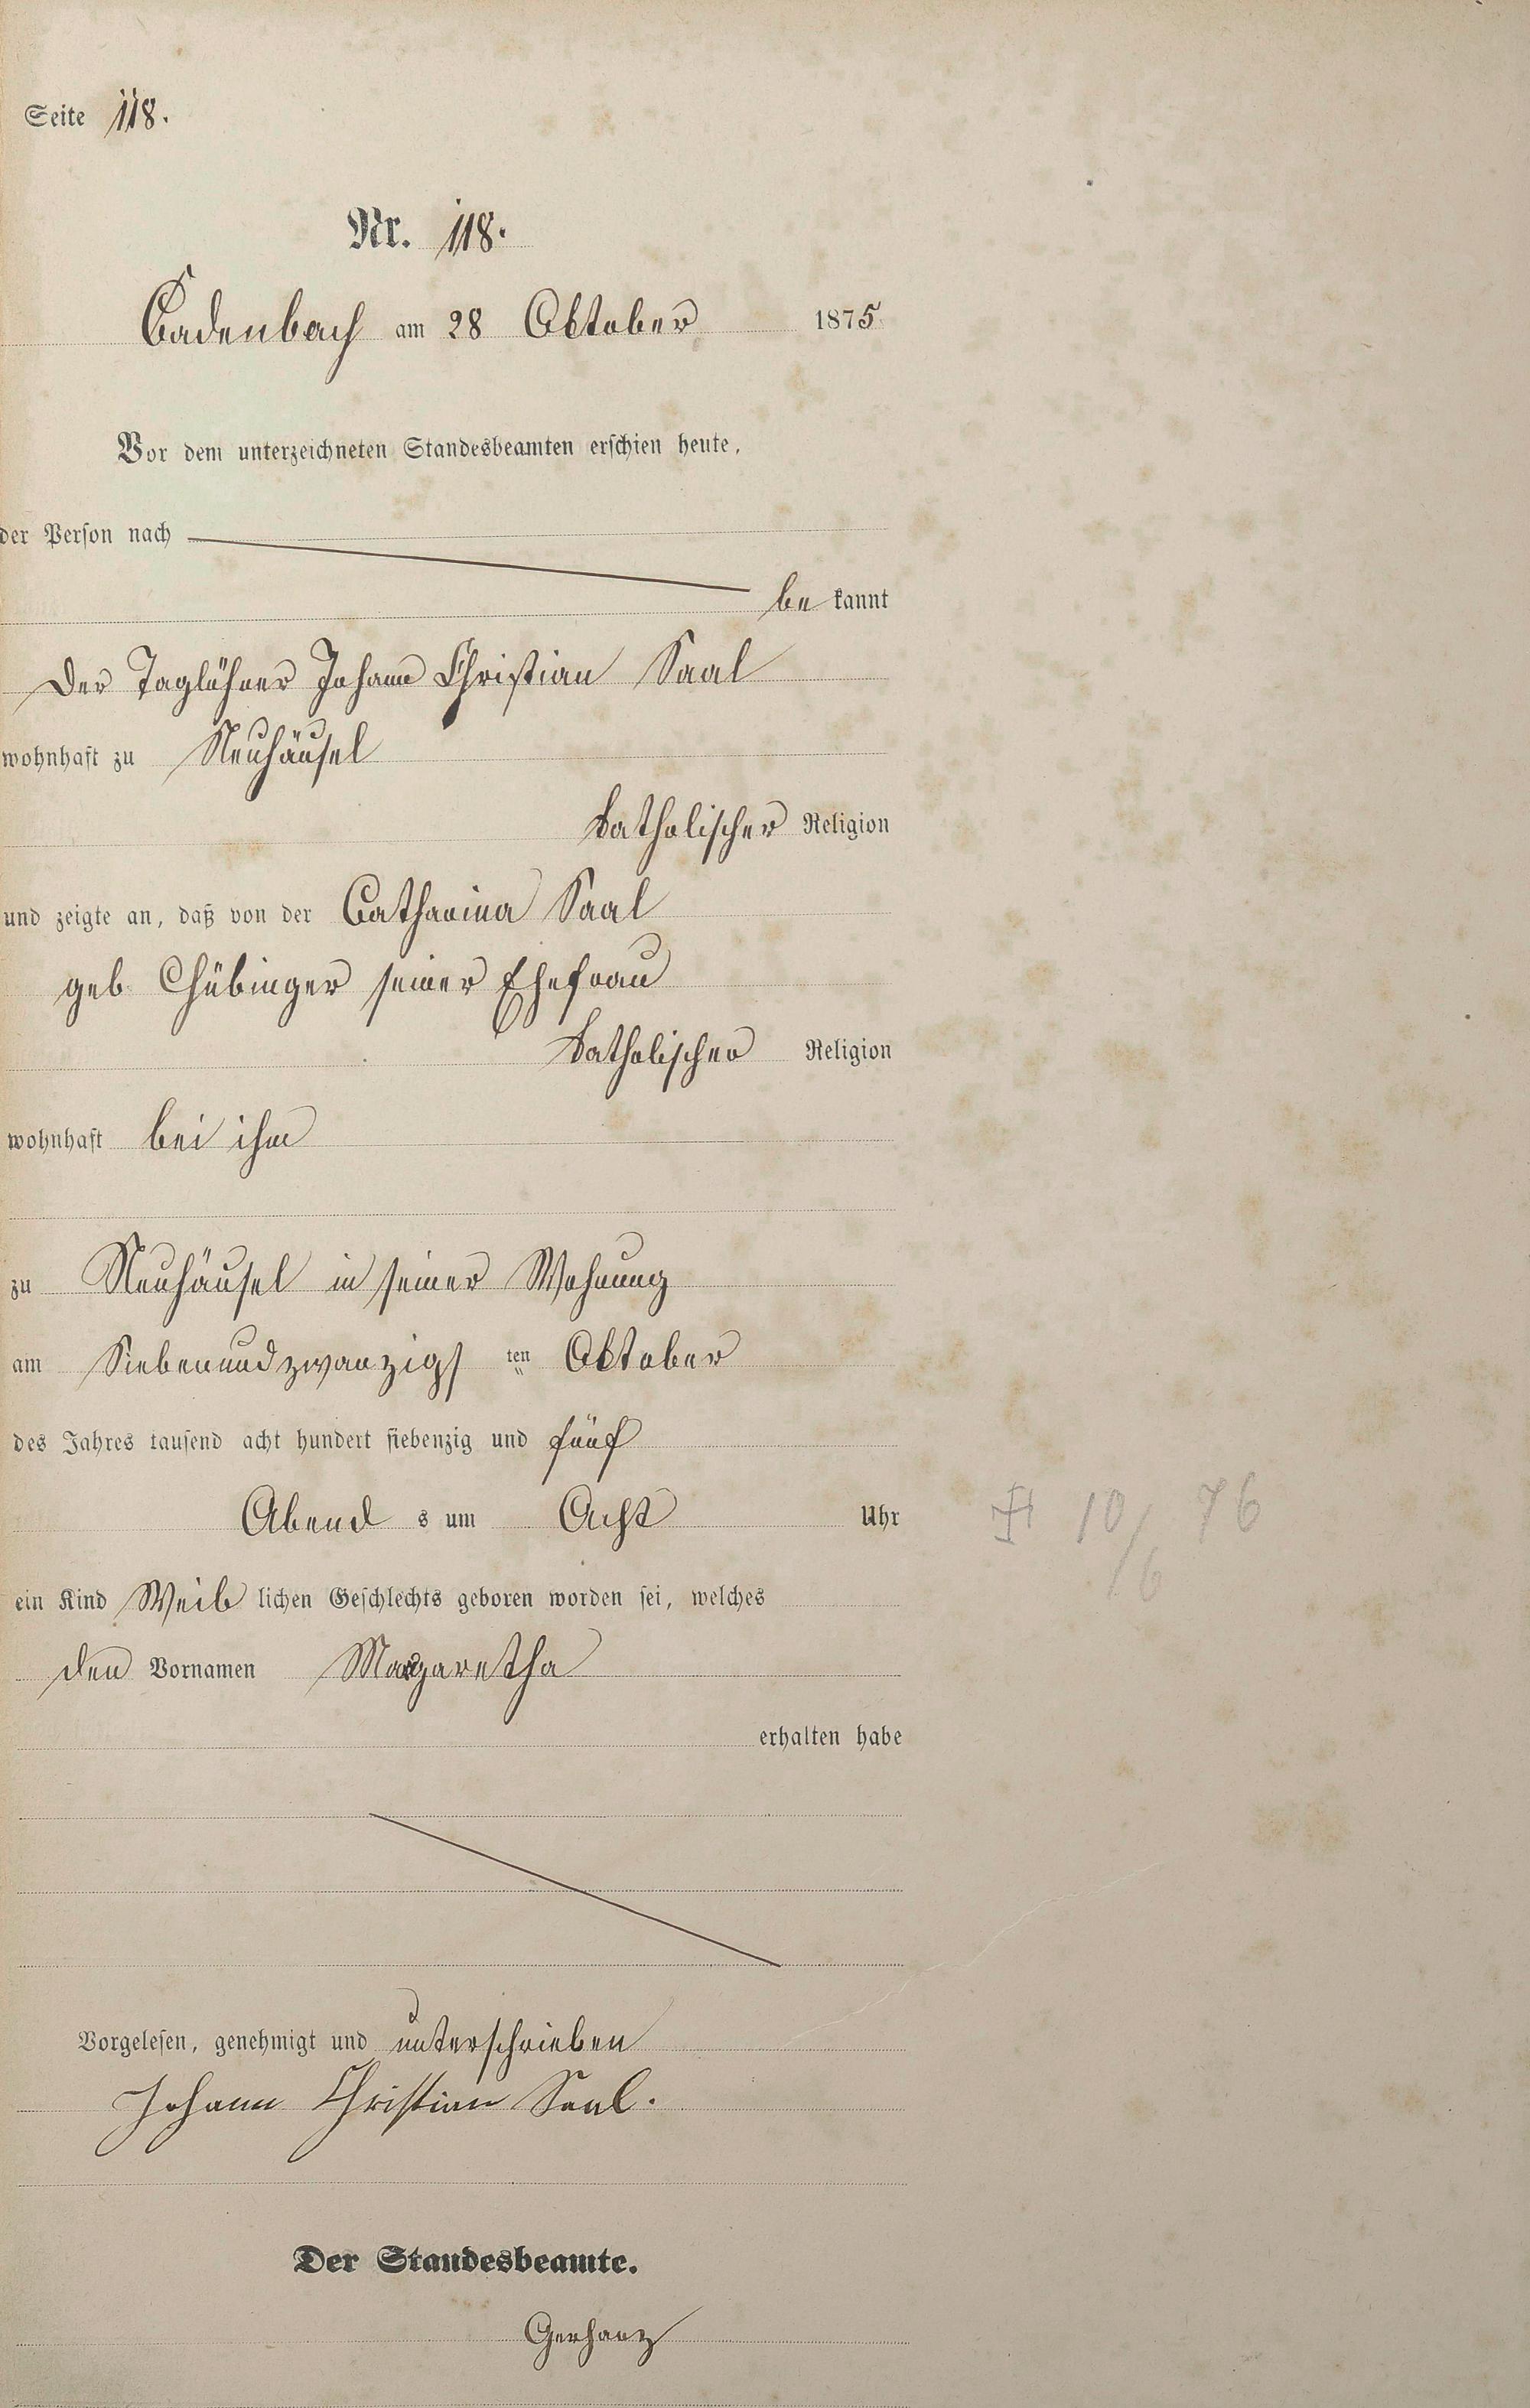 Seite 118.
Nr. 118.
Cadenbach am 28 Oktober 1875
Vor dem unterzeichneten Standesbeamten erschien heute,
der Person nach
be kannt
der Taglöhner Johann Christian Saal
wohnhaft zu Neuhäusel
katholischer Religion
und zeigte an, daß von der Catharina Saal
geb. seiner Ehefrau
katholischer Religion
wohnhaft bei ihm
zu Neuhäusel in seiner Wohnung
am Siebenundzwanzigs ten Oktober
des Jahres tausend acht hundert siebenzig und fünf
Abend s um Acht Uhr
10/6 76
ein Kind Weib lichen Geschlechts geboren worden sei, welches
den Vornamen Margaretha
erhalten habe
Vorgelesen, genehmigt und unterschrieben
Johann Christian Saal.
Der Standesbeamte.
Gerhanz